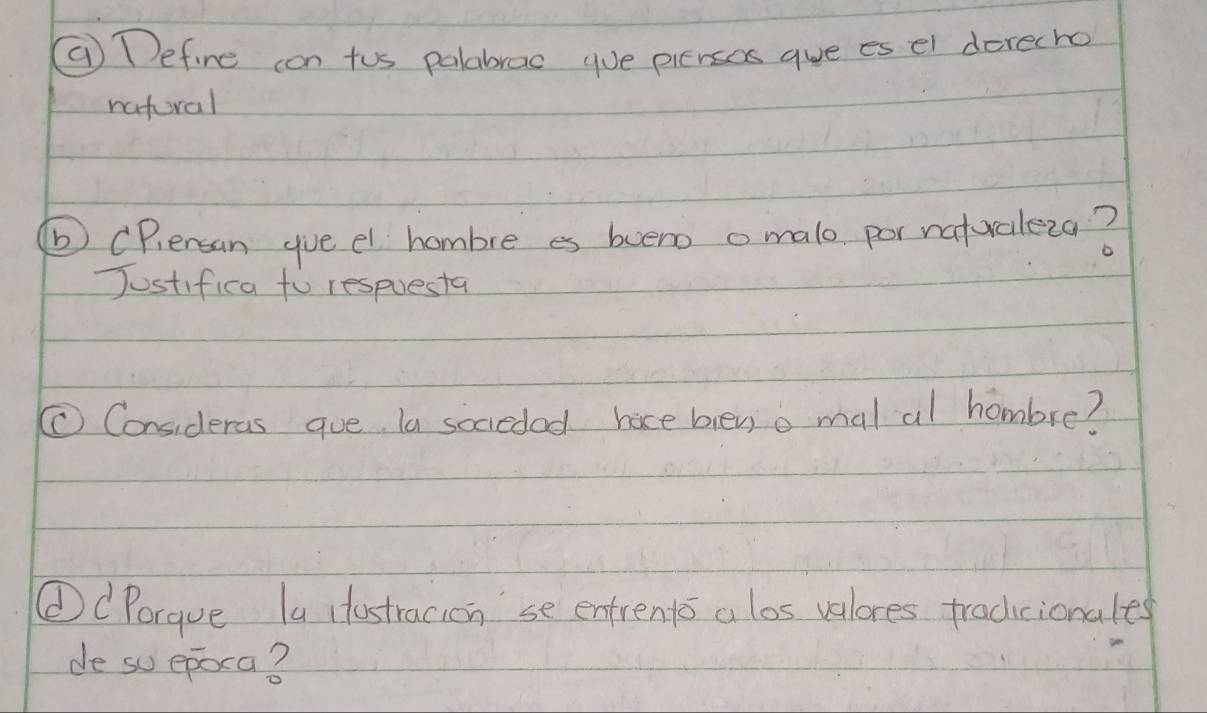 a) Define con tus palabras que piensas que es el derecho
natural
b) ¿Piensan que el hombre es bueno o malo por naturaleza?
Justifica tu respuesta
c) Consideras que la sociedad hace bien o mal al hombre?
d) ¿Porque la ilustración se enfrentó a los valores tradicionales
de su época?